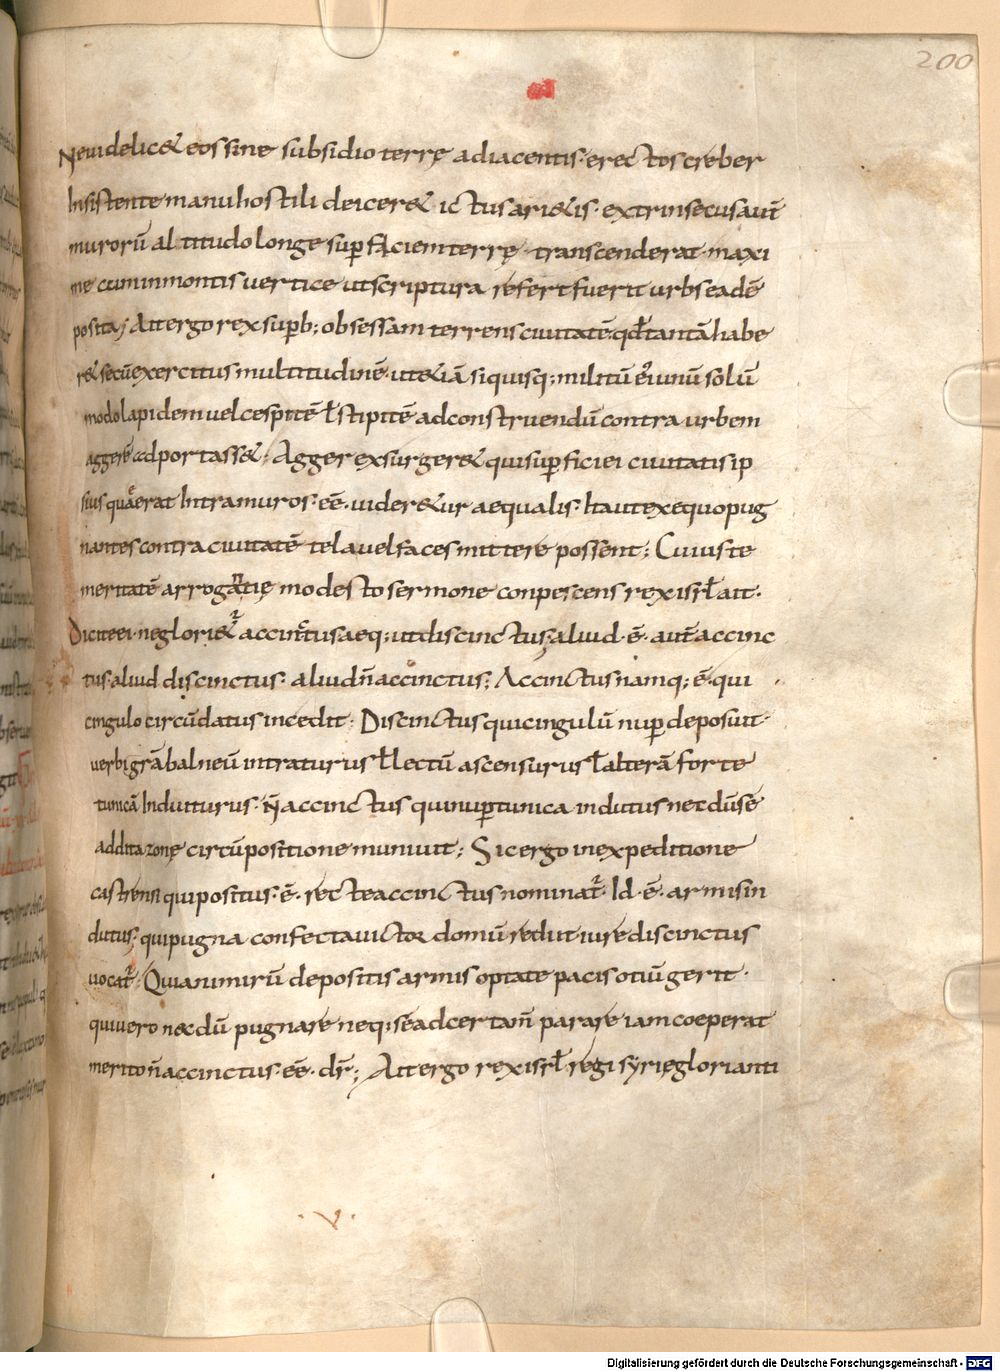 200
Neuidelic& eos sine subsidio terrę adiacentis· erectos creber
Insistente manu hostili deicer& ictus ari&is· extrinsecus aut̄
murorū altitudo longe sup̱ faciem terrę transcenderat· maxi
me cum in montis uertice ut scriptura refert fuerit urbs eadē
posita; Ait ergo rex superb; obsessam terrens ciuitatē qđ tantā habe
r& secū exercitus multitudinē· ut &iā si quisq; militū ei unū solū
modo lapidem uel cespitē ł stipitē ad construendū contra urbem
aggerē adportass&; Agger exsurger& qui sup̱ficiei ciuitatis ip
sius quae erat Intra muros· eē· uider&ur aequalis· Ita ut ex equo pug
nantes contra ciuitatē tela uel faces mittere possent; Cuius te
meritatē arrogantię modesto sermone conpescens rex isrł ait·
Dicite ei· ne glori&r accinctus aeq; ut discinctus, aliud· ē· aut̄ accinc
tus· aliud discinctus· aliud n̄ accinctus; Accinctus namq; ē· qui
cingulo circūdatus incedit; Discinctus qui cingulū nup̱ deposuit·
uerbi grā balneū intraturus ł lectū ascensurus ł alterā forte
tunicā Induiturus· n̄ accinctus qui nup̱ tunica indutus necdū sē
addita zonę circūpositione muniuit; Sic ergo in expeditione
castrensi qui positus· ē· recte accinctus nominat̄· Id· ē· armis in
dutus; qui pugna confecta uictor domū rediit iure discinctus
uocat̄; Quia nimirū depositis armis optate pacis otiū gerit·
qui uero necdū pugnare neq; se ad certam̄ parare iam coeperat
merito n̄ accinctus· eē· dr̄; Ait ergo rex isrł regi syrię glorianti
· v ·
Digitalisierung gefördert durch die Deutsche Forschungsgemeinschaft - DFG